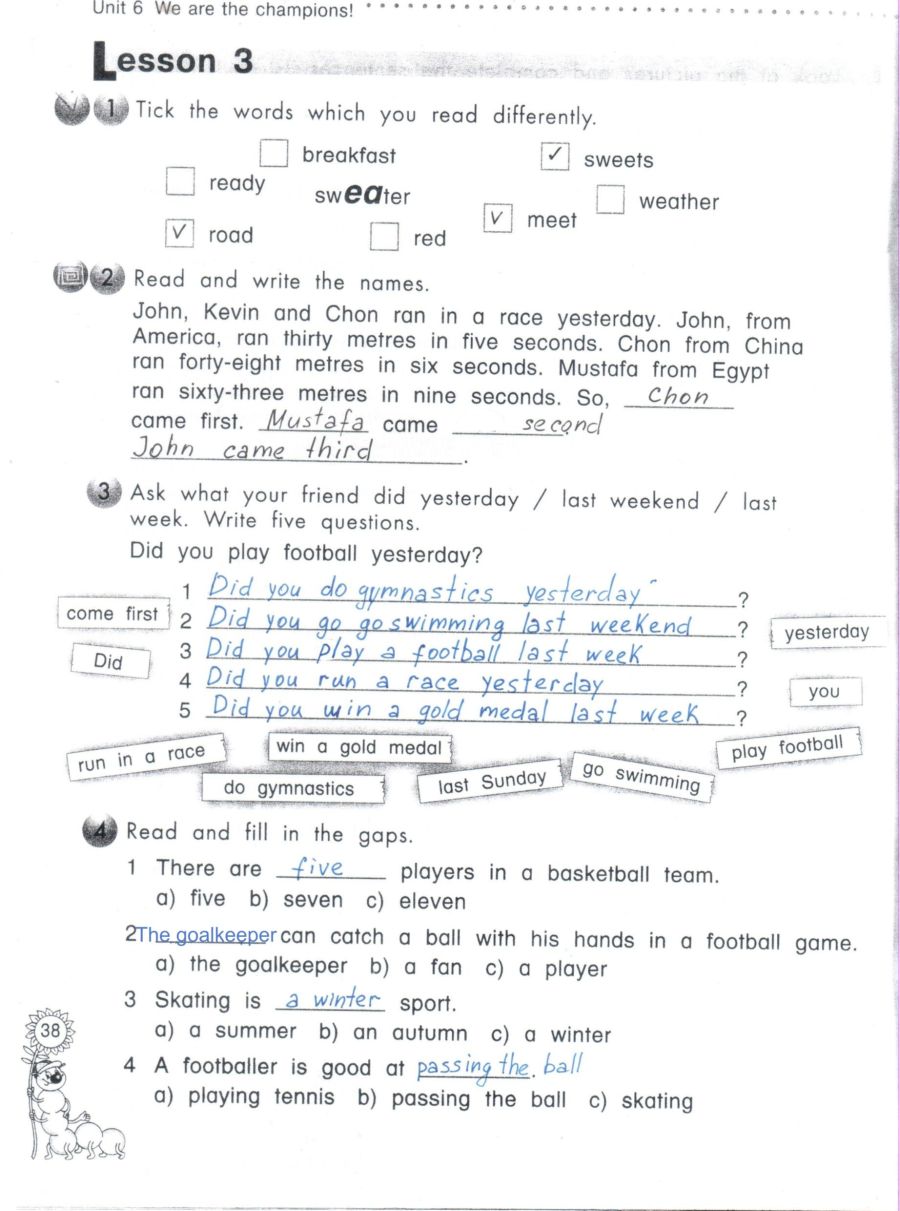 Unit 6 We are the champions!
Lesson 3
1 Tick the words which you read differently.
breakfast ✓ sweets
ready sweater weather
✓ road red ✓ meet
2 Read and write the names.
John, Kevin and Chon ran in a race yesterday. John, from
America, ran thirty metres in five seconds. Chon from China
ran forty-eight metres in six seconds. Mustafa from Egypt
ran sixty-three metres in nine seconds. So, Chon
came first. Mustafa came second
John came third.
3 Ask what your friend did yesterday / last weekend / last
week. Write five questions.
Did you play football yesterday?
1 Did you do gymnastics yesterday?
come first 2 Did you go go swimming last weekend? yesterday
Did 3 Did you play a football last week?
4 Did you run a race yesterday? you
5 Did you win a gold medal last week?
run in a race win a gold medal play football
do gymnastics last Sunday go swimming
4 Read and fill in the gaps.
1 There are five players in a basketball team.
a) five b) seven c) eleven
2 The goalkeeper can catch a ball with his hands in a football game.
a) the goalkeeper b) a fan c) a player
3 Skating is a winter sport.
a) a summer b) an autumn c) a winter
38
4 A footballer is good at passing the. ball
a) playing tennis b) passing the ball c) skating